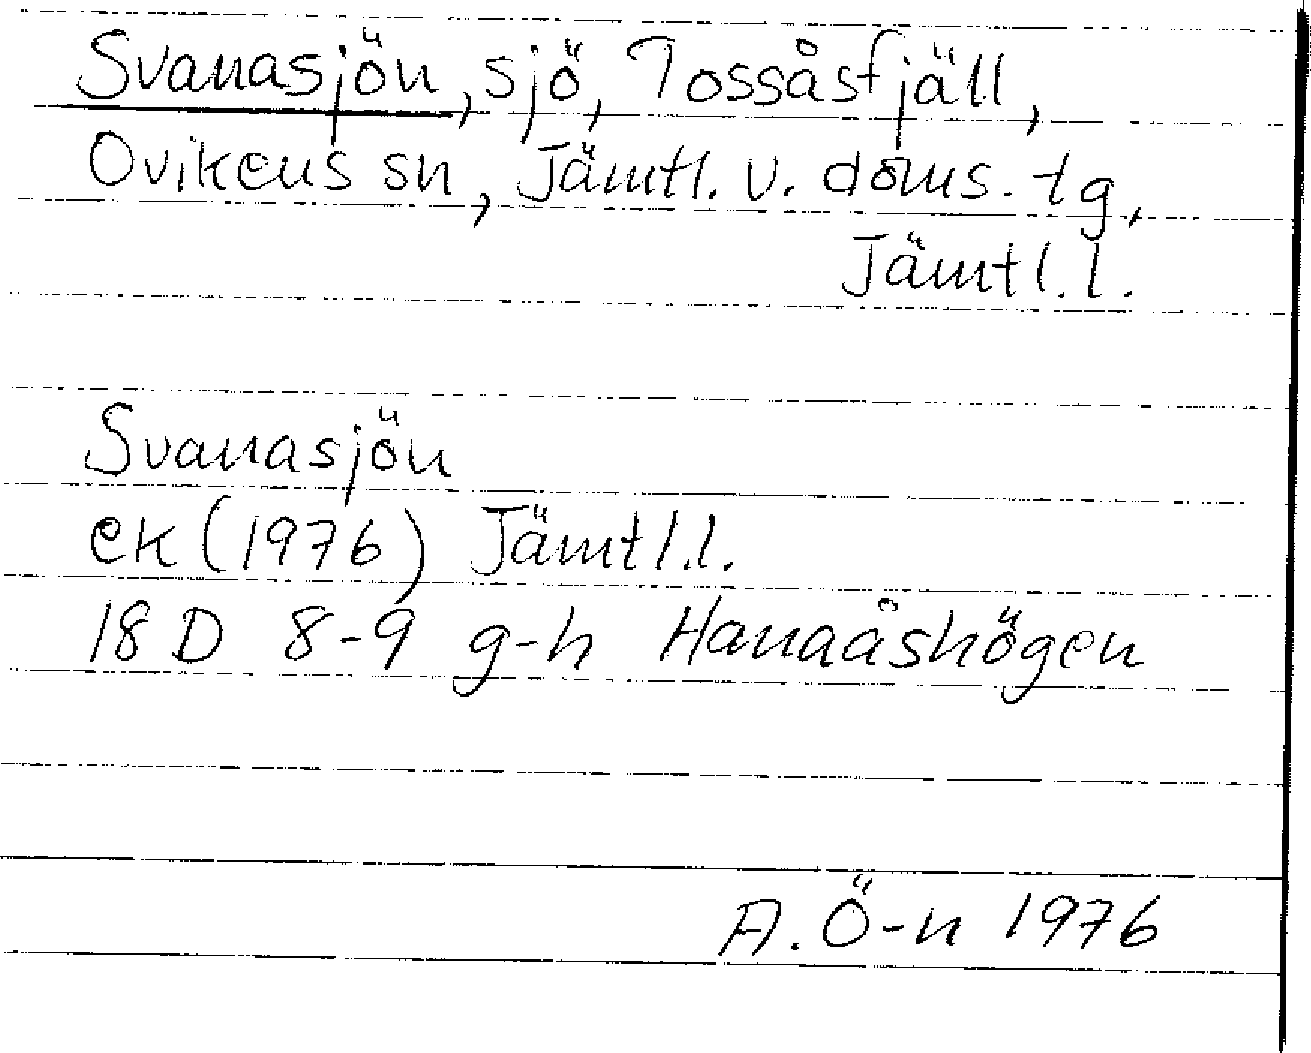 Svanasjön, sjö, Tossåsfjäll,
Ovikens sn, Jämtl. v. doms. tg,
Jämtl. l.
Svanasjön
ek (1976) Jämtl.l.
18 D 8-9 g-h Hanaåshögen
A. Ö-n 1976